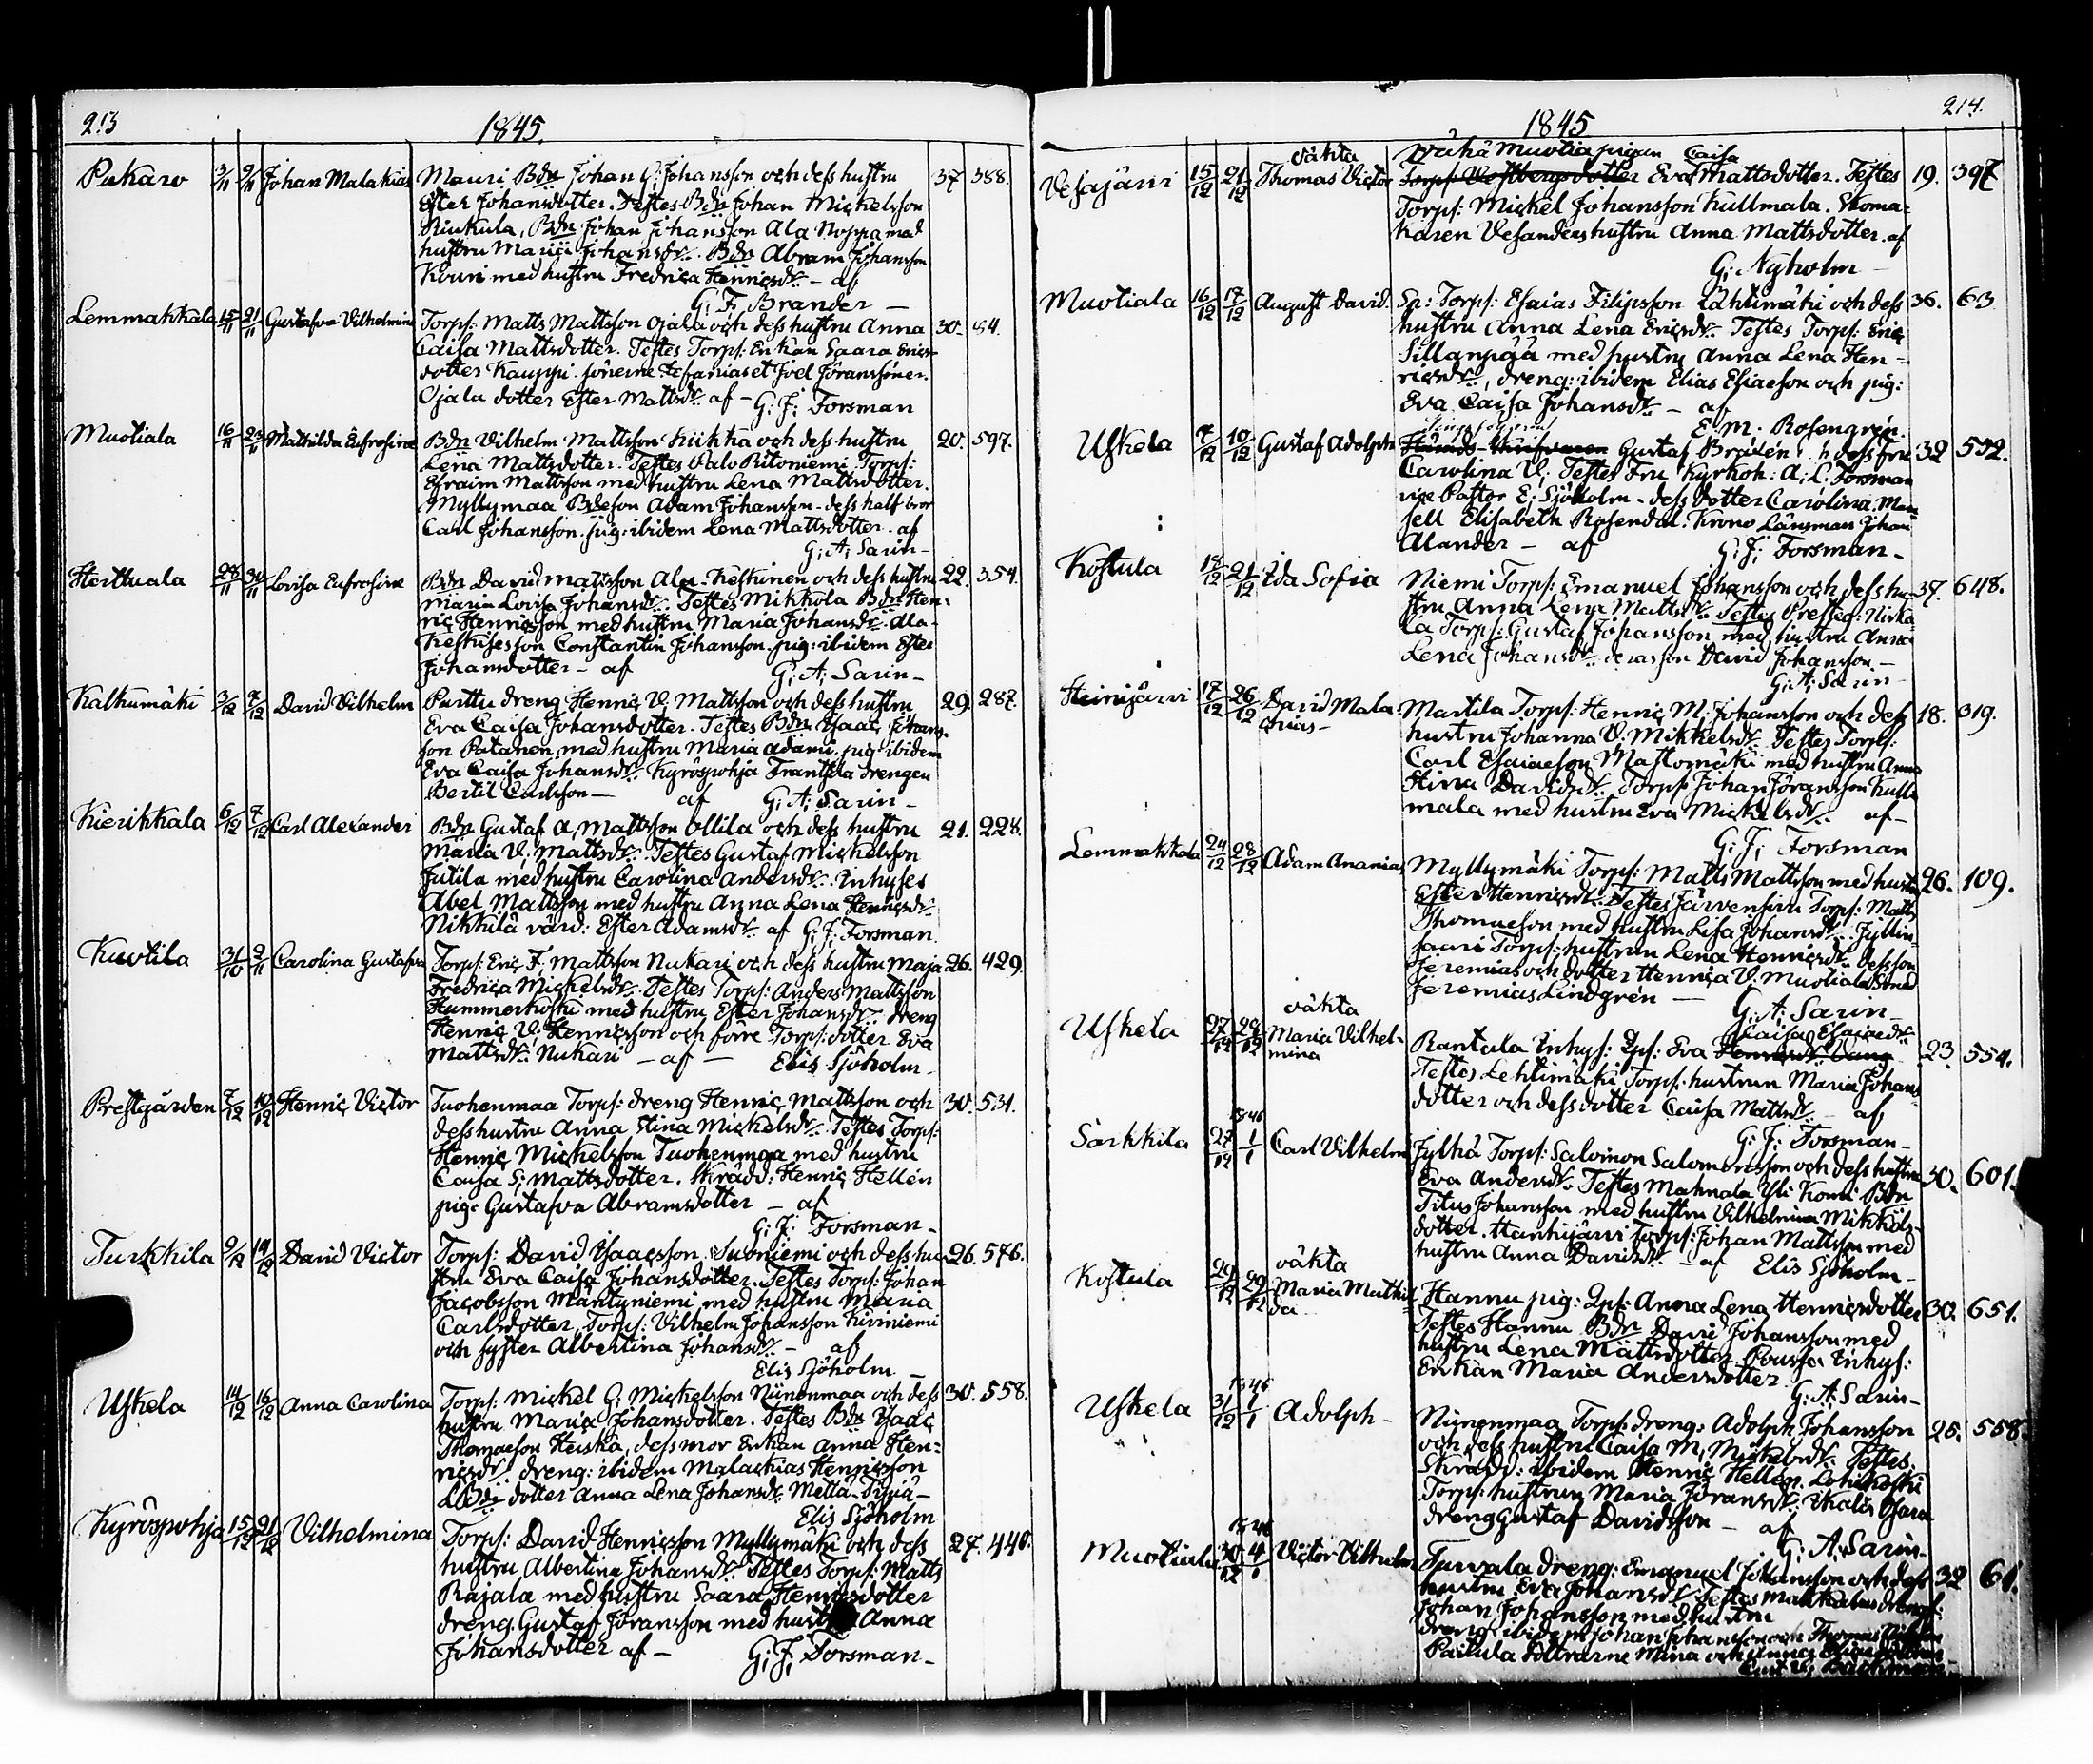 213
1845.
Pukaro 3/11 9/11 Johan Malakias Mauri Bdn Johan G. Johansson och dess hustru 37 388.
Ester Johansdotter. Testes Bdn Johan Mickelsson
Riukula, Bdn Johan Johansson Ala Noppa med
hustru Maria Johansdr. Bdn Abram Johansson
Kouri med hustru Fredrica Henricsdr. – af
G. F. Brander –
Lemmakkala 15/11 21/11 Gustafva Vilhelmina Torps: Matts Mattsson Ojala och dess hustru Anna 30.
Caisa Mattsdotter. Testes Torps: Enkan Saara Erics-
dotter Kauppi. sönerne et Joel Göranssöner.
Ojala dotter Ester Mattsdr. af – G: F; Forsman
Muotiala 16/11 23/11 Mathilda Eufrosine Bdn Vilhelm Mattsson Kiikka och dess hustru 20. 597.
Leena Mattsdotter. Testes Valo Ritoniemi Torps:
Efraim Mattsson med hustru Lena Mattsdotter.
Myllymaa Bdeson Adam Johansson – dess half bror
Carl Johansson. pig: ibidem Lena Mattsdotter. af
G; A; Sarin –
Herttuala 28/11 30/11 Lovisa Eufrosine Bdn David Mattsson Ala-Keskinen och dess hustru 22. 354.
Maria Lovisa Johansdr. Testes Mikkola Bdn Hen-
ric Henricsson med hustru Maria Johansdr. Ala-
Constantin Johansson. pig: ibidem Ester
Johansdotter – af G; A; Sarin –
Kalkumäki 3/12 7/12 David Vilhelm Purttu dreng Henric V. Mattsson och dess hustru 29. 287.
Eva Caisa Johansdotter. Testes Bdn Ysaac Johans-
son Patanen med hustru Maria Adami. pig: ibidem
Eva Caisa Johansdr. Kyröspohja Franttila drengen
Bertil Carlsson – af G; A; Sarin –
Kierikkala 6/12 7/12 Carl Alexander Bdn Gustaf A, Mattsson Ollila och dess hustru 21. 228.
Maria V; Mattsdr. Testes Gustaf Mickelsson
Jutila med hustru Carolina Andersdr. Inhyses
Abel Mattsson med hustru Anna Lena Henricsdr.
Nikkilä värd: Ester Adamsdr. af G; F; Forsman
Kuotila 31/10 2/11 Carolina Gustafva Torps: Eric F; Mattsson Nukari och dess hustru Maja 26. 429.
Fredrica Mickelsdr. Testes Torps: Anders Mattsson
Hammerkoski med hustru Ester Johansdr. dreng
Henric V; Henricsson och förre Torps: dotter Eva
Mattsdr. Nukari – af – Elis Sjöholm –
Prestgården 7/12 10/12 Henric Victor Tuohenmaa Torps: dreng Henric Mattsson och 30. 531.
dess hustru Anna Stina Mickelsdr. Testes Torps:
Henric Mickelsson Tuohenmaa med hustru
Caisa S; Mattsdotter. Skrädd: Henric Hellén
pig: Gustafva Abramsdotter – af
G; F; Forsman –
Turkkila 9/12 14/12 David Victor Torps: David Ysaacsson Suoniemi och dess hu- 26. 576.
stru Eva Caisa Johansdotter. Testes Torps: Johan
Jacobsson Mäntyniemi med hustru Maria
Carlsdotter, Torps: Vilhelm Johansson Kiviniemi
och syster Albertina Johansdr. – af
Elis Sjöholm –
Uskela 14/12 16/12 Anna Carolina Torps: Mickel G; Mickelsson Niinenmaa och dess 30. 558.
hustru Maria Johansdotter. Testes Bdn Ysaac
Thomaeson Heiska, dess mor Enkan Anna Hen-
ricsdr. dreng: ibidem Malackias Henricsson
LBdi dotter Anna Lena Johansdr. Metta-Sipiä –
Elis Sjöholm
Kyröspohja 15/12 21/12 Vilhelmina Torps: David Henricsson Myllymäki och dess 27. 440.
hustru Albertina Johansdr. Testes Torps: Matts
Rajala med hustru Saara Henricsdotter
dreng. Gustaf Göransson med hustru Anna
Johansdotter af – G; F; Forsman –
214.
1845
Vesajärvi 15/12 21/12 oäkta Thomas Victor Vähä Muotia pigan Caisa
Eva Mattsdotter. Testes 19. 397
Torps: Mickel Johansson Kullmala. Thoma-
Karen Vesanders hustru Anna Mattsdotter. af
G; Nyholm –
Muotiala 16/12 17/12 August David. Sp: Torps: Esaias Filipsson Lähtimäki och dess 36. 63
hustru Anna Lena Ericsdr. Testes Torps: Eric
Sillanpää med hustru Anna Lena Hen-
ricsdr., dreng: ibidem Elias Esiaeson och pig:
Eva Caisa Johansdr. – af
E: M. Rosengrén.
Uskela 7/12 10/12 Gustaf Adolph Gustaf Bradén och dess fru 32 552.
Carolina V; Testes Fru Kyrkoh: A; L; Forsman
vice Pastor E; Sjöholm – dess dotter Carolina. Mam-
sell Elisabeth Rosendal. Krono Länsman Johan
Alander – af G; F; Forsman –
Kostula 18/12 21/12 Ida Sofia Niemi Torps: Emanuel Johansson och dess hu- 37. 648.
stru Anna Lena Mattsdr. Testes
Torps: Gustaf Johansson med hustru Anna
Lena Johansdr. deras son David Johansson. –
G; A; Sarin –
Heinijärvi 17/12 26/12 David Mala- Marttila Torps: Henric M: Johansson och dess 18. 319.
chias – hustru Johanna V. Mikkelsdr. Testes Torps:
Carl Esaiaeson Mastomäki med hustru Anna
Stina Davidsdr. Torps: Johan Göransson Kull-
mala med hustru Eva Mickelsdr. af –
G; F; Forsman
Lemmakkala 24/12 28/12 Adam Ananias Myllymäki Torps: Matts Mattsson med hustru 26. 109.
Ester Henricsdr. Testes Järvensivu Torps: Matts
Thomaeson med hustru Lisa Johansdr.
Torps: hustrun Lena Henricsdr. dess son
Jeremias och dotter Henrica V. Muotiala Smed
Jeremias Lindgrén – G; A; Sarin –
Uskela 27/12 28/12 oäkta Maria Vilhel-
mina Rantala Inhys: Qps: Eva Caisa Esaiaedr. 23. 554.
Testes Lehtimäki Torps: hustrun Maria Johans-
dotter och dess dotter Caisa Mattsdr. – af
G; F; Forsman –
Sarkkila 27/12 1846 1/1 Carl Vilhelm Jylhä Torps: Salomon Salomonsson och dess hustru 30. 601.
Eva Andersdr. Testes Mahnala Yli Kouri Bdn
Titus Johansson med hustru Vilhelmina Mikkels-
dotter. Hanhijärvi Torps: Johan Mattsson med
hustru Anna Davidsdr. – af Elis Sjöholm –
Kostula 29/12 29/12 oäkta Maria Mathil-
da Hannu pig: Qps: Anna Lena Henricsdotter 30. 651.
Testes Hannu Bdn David Johansson med
hustru Lena Mattsdotter. Poussa Inhys:
Enkan Maria Andersdotter
G; A; Sarin –
Uskela 31/12 1846 1/1 Adolph – Niinenmaa Torps: dreng: Adolph Johansson 25. 558.
och dess hustru Caisa M; Mickelsdr. Testes
Skrädd: ibidem Henric Hellén. Lohikoski
Torps: hustrun Maria Göransdr.
dreng Gustaf Davidsson – af
G; A; Sarin –
Muotiala 30/12 1846 4/1 Victor Vilhelm Turvala dreng: Emanuel Johansson och dess 32 61.
hustru Eva Johansdr. Testes
Johan Johansson med hustru
dreng: ibidem Johan Johansson och Thomas
Pailula döttrarne Mina och Anna